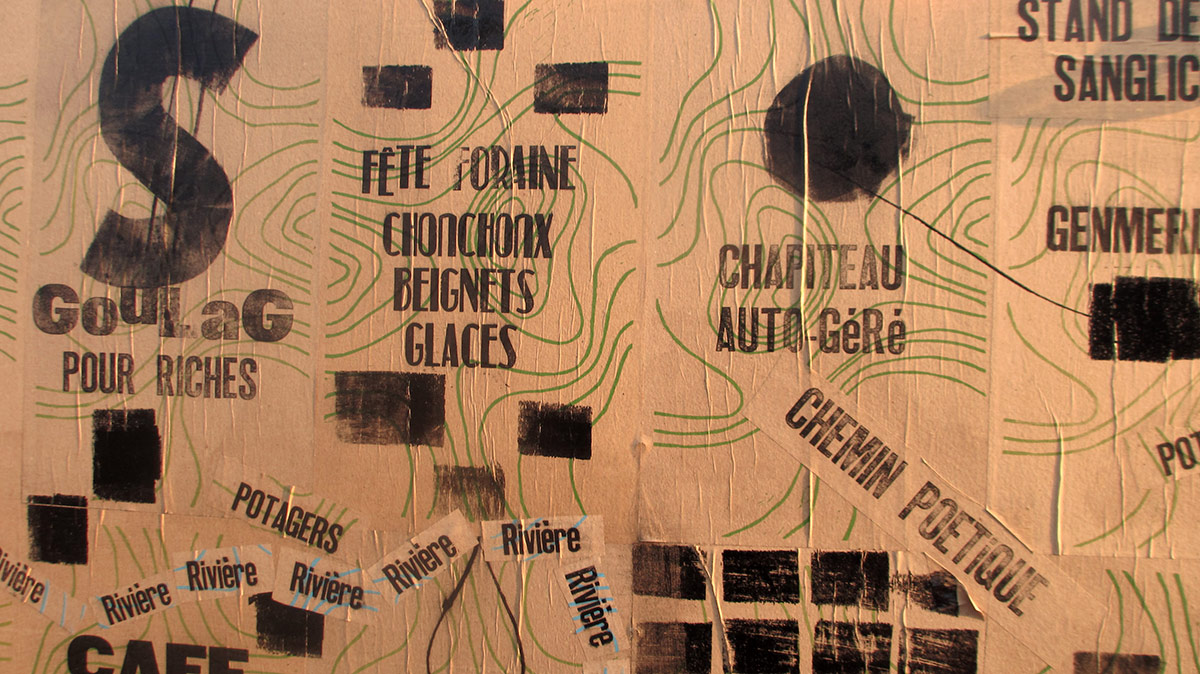 S
GouLaG
POUR RICHES
FÊTE FORAINE
CHONCHONX
BEIGNETS
GLACES
CHAPITEAU
AUTO-GéRé
STAND DE
SANGLIC
GENMERI
CHEMIN POETIQUE
POT
POTAGERS
Rivière
Rivière
Rivière
Rivière
Rivière
Rivière
Rivière
CAFE